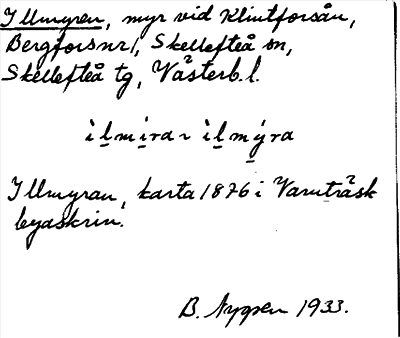 Illmyren, myr vid Klintforsån,
Bergfors nr 1, Skellefteå sn,
Skellefteå tg, Västerb. l.
ìl̲mi̲ra ~ ìl̲mý̲ra
Illmyran, karta 1876 i Varuträsk
byaskrin.
B. Nygren 1933.